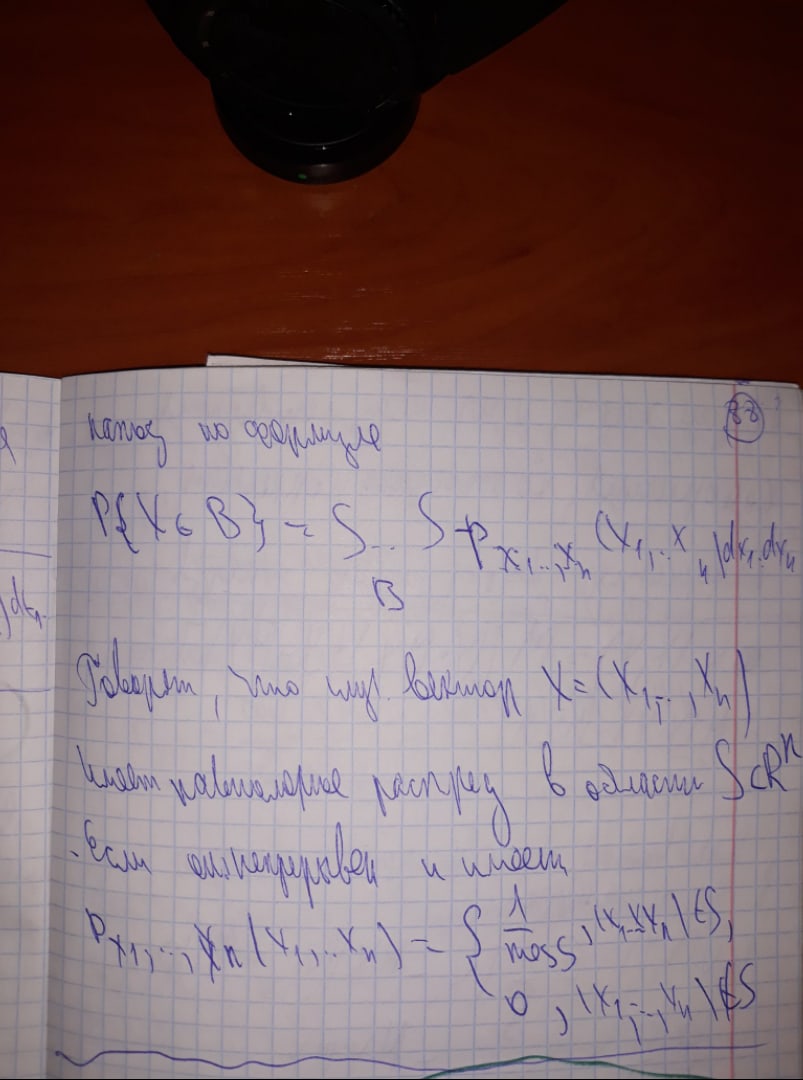 88
по формуле
P{X ∈ B} = ∫...∫ p_{X_1,...,X_n}(x_1,...x_n)dx_1..dx_n
B
Говорят, что сл. вектор X=(X_1,..,X_n)
имеет равномерное распред в области S⊂R^n
Если он непрерывен и имеет
P_{X_1,..,X_n}(x_1,..x_n) = { 1/mes S, (x_1...x_n)∈S,
0, (x_1,..,x_n)∉S
)dt_n.